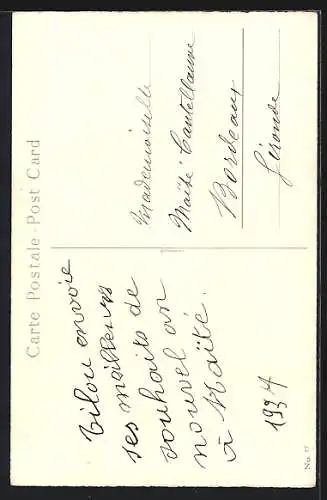 Carte Postale - Post Card
Tilou envoie
ses meilleurs
souhaits de
nouvel an
à Maïté.
1937
Mademoiselle
Maïté Cantellaune
Bordeaux
Gironde